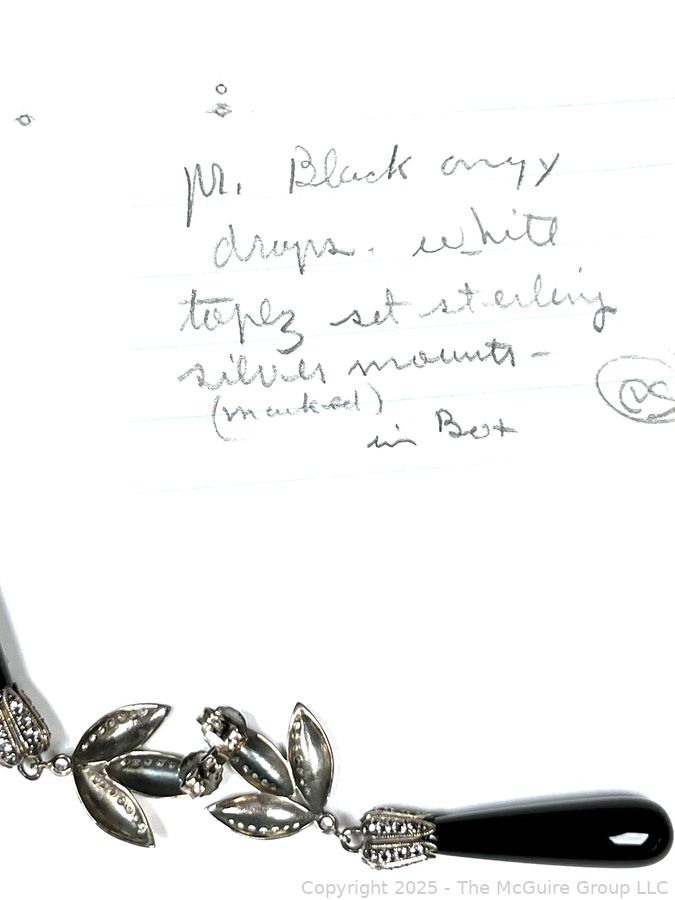 pr. Black onyx
drops. white
topez set sterling
silver mounts -
(marked)
in Box
Copyright 2025 - The McGuire Group LLC